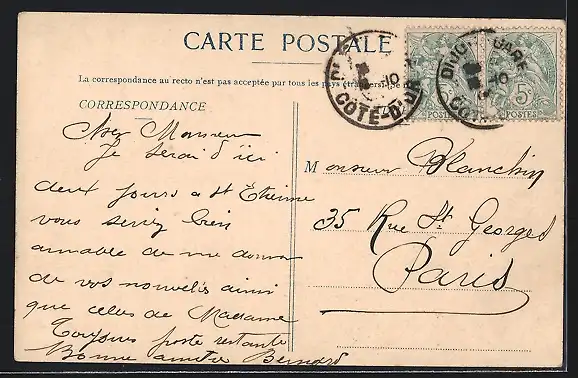 CARTE POSTALE
La correspondance au recto n'est pas acceptée par tous les pays étrangers
CORRESPONDANCE
DIJON GARE
10
CÔTE-D'OR
5c
POSTES
Cher Monsieur
Je serai d'ici
deux jours a St Etienne
vous seriez bien
aimable de me donner
de vos nouvelles ainsi
que celles de Madame
Toujours poste restante
Bonne amitié Bernard
Monsieur Blanchin
35 Rue St. Georges
Paris